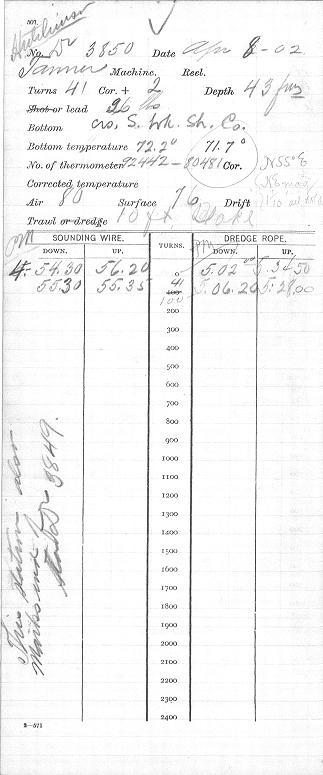 701.
Hutchinson
Dr
No. 3850 Date Apr 8-02
Tanner Machine, Reel.
Turns 41 Cor. + 2 Depth 43 fms
Shot or lead 26 lbs
Bottom crs, S. brk. Sh. Co.
Bottom temperature 72.2° 71.7°
No. of thermometer 92442-80481 Cor. N 55° E
Corrected temperature
Air 80 Surface 76 Drift
Trawl or dredge 10 ft
SOUNDING WIRE. TURNS. DREDGE ROPE.
DOWN. UP. DOWN. UP.
PM PM
4- 54.30 56.20 0 5.02 00 5.34 50
55.30 55.35 41 5.06.20 5.28.00
100
100
200
300
400
500
600
700
800
900
1000
1100
1200
1300
1400
1500
1600
1700
1800
1900
2000
2100
2200
2300
2400
This station also
3849.
2—571